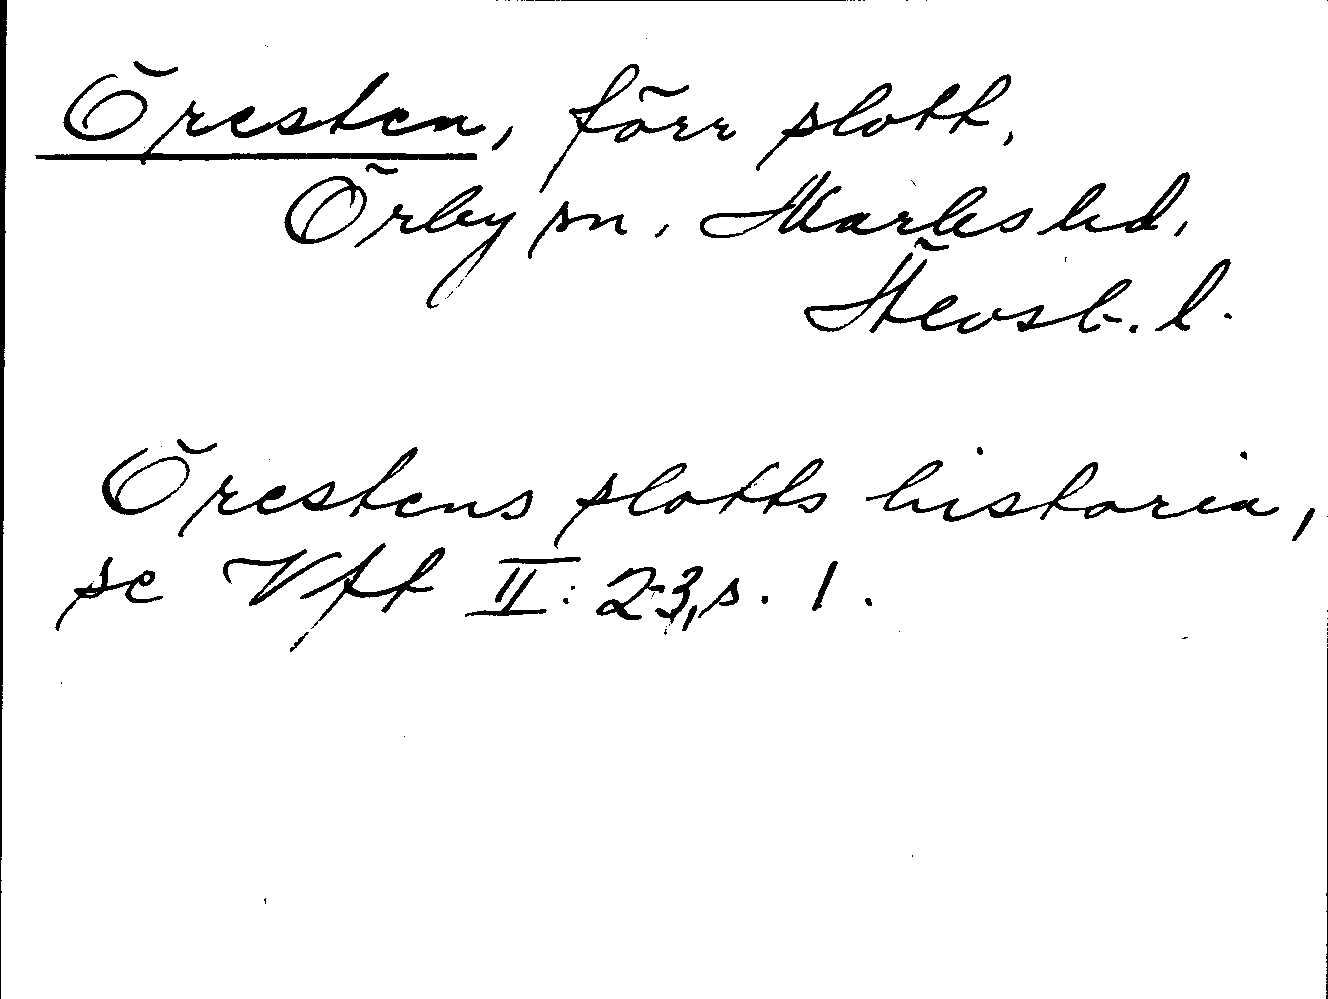 Öresten, förr slott,
Örby sn, Marks hd,
Älvsb. l.
Örestens slotts historia,
se Vft II: 2-3, s. 1.